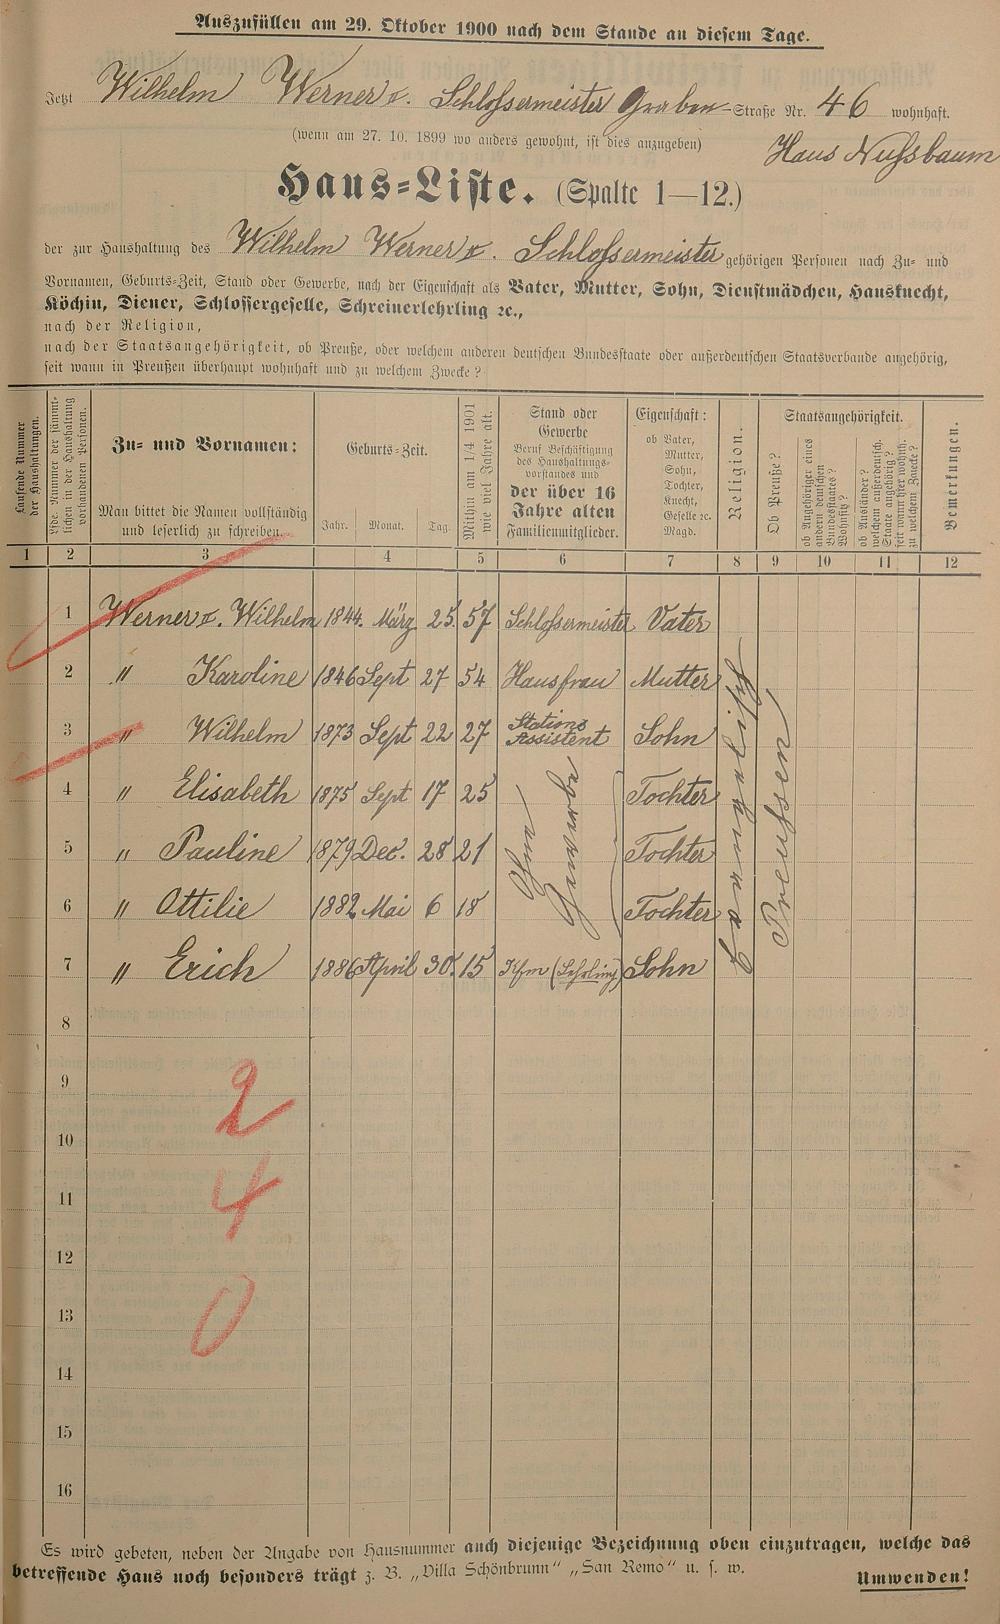 Auszufüllen am 29. Oktober 1900 nach dem Stande an diesem Tage.
Jetzt Wilhelm Werner II. Schlossermeister Graben-Straße Nr. 46 wohnhaft.
(wenn am 27. 10. 1899 wo anders gewohnt, ist dies anzugeben) Haus Nußbaum
Haus-Liste. (Spalte 1—12.)
der zur Haushaltung des Wilhelm Werner II. Schlossermeister gehörigen Personen nach Zu- und
Vornamen, Geburts-Zeit, Stand oder Gewerbe, nach der Eigenschaft als Vater, Mutter, Sohn, Dienstmädchen, Hausknecht,
Köchin, Diener, Schlossergeselle, Schreinerlehrling ꝛc.,
nach der Religion,
nach der Staatsangehörigkeit, ob Preuße, oder welchem anderen deutschen Bundesstaate oder außerdeutschen Staatsverbande angehörig,
seit wann in Preußen überhaupt wohnhaft und zu welchem Zwecke?
Laufende Nummer
der Haushaltungen.
Lfde. Nummer der sämmt-
lichen in der Haushaltung
vorhandenen Personen.
Zu- und Vornamen:
Man bittet die Namen vollständig
und leserlich zu schreiben.
Geburts-Zeit.
Jahr. Monat. Tag.
Mithin am 1/4 1901
wie viel Jahre alt.
Stand oder
Gewerbe
Beruf Beschäftigung
des Haushaltungs-
vorstandes und
der über 16
Jahre alten
Familienmitglieder.
Eigenschaft:
ob Vater,
Mutter,
Sohn,
Tochter,
Knecht,
Geselle ꝛc.
Magd.
Religion.
Staatsangehörigkeit.
Ob Preuße?
ob Angehöriger eines
andern deutschen
Bundesstaates?
Wohnsitz?
ob Ausländer?
welchem außerdeutsch.
Staate angehörig?
seit wann hier wohnh.
zu welchem Zwecke?
Bemerkungen.
1 2 3 4 5 6 7 8 9 10 11 12
1 Werner II. Wilhelm 1844. März 25. 57 Schlossermeister Vater
2 " Karoline 1846 Sept 27 54 Hausfrau Mutter
3 " Wilhelm 1873 Sept 22 27 Stations Assistent Sohn
4 " Elisabeth 1875 Sept 17 25 Tochter
5 " Pauline 1879 Dec. 28 21 Tochter
6 " Ottilie 1882 Mai 6 18 Tochter
7 " Erich 1886 April 30. 15 Kfm (Lehrling) Sohn
Ohne
Gewerbe
Evangelisch
Preußen
8
9
10
11
12
13
14
15
16
2
4
0
Es wird gebeten, neben der Angabe von Hausnummer auch diejenige Bezeichnung oben einzutragen, welche das
betreffende Haus noch besonders trägt z. B. „Villa Schönbrunn" „San Remo" u. s. w.
Umwenden!